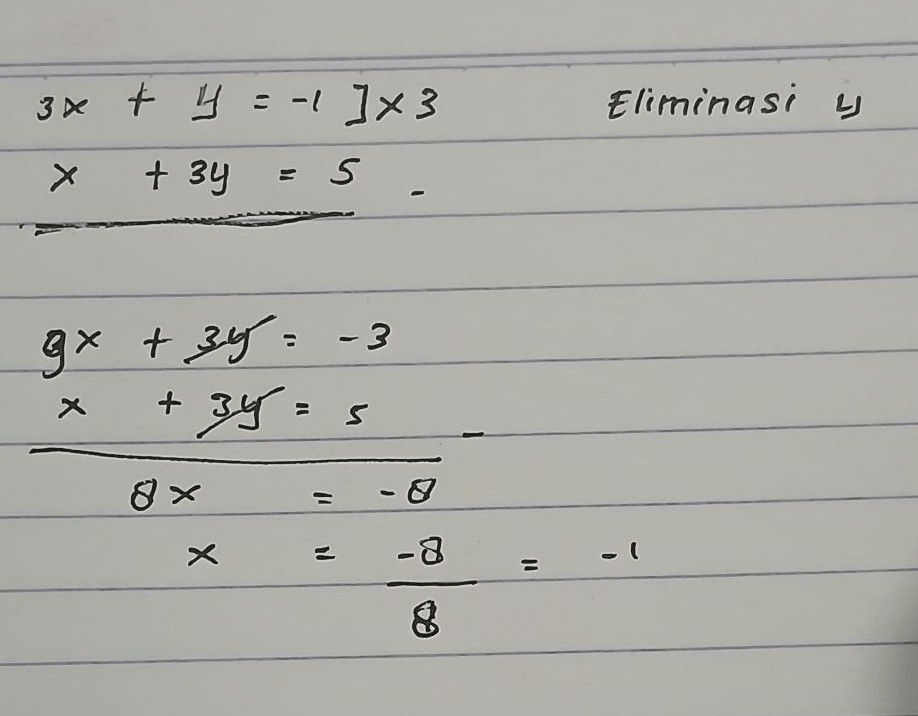 3x + y = -1 ] × 3 Eliminasi y
x + 3y = 5 -
9x + 3y = -3
x + 3y = 5 -
8x = -8
x = -8/8 = -1